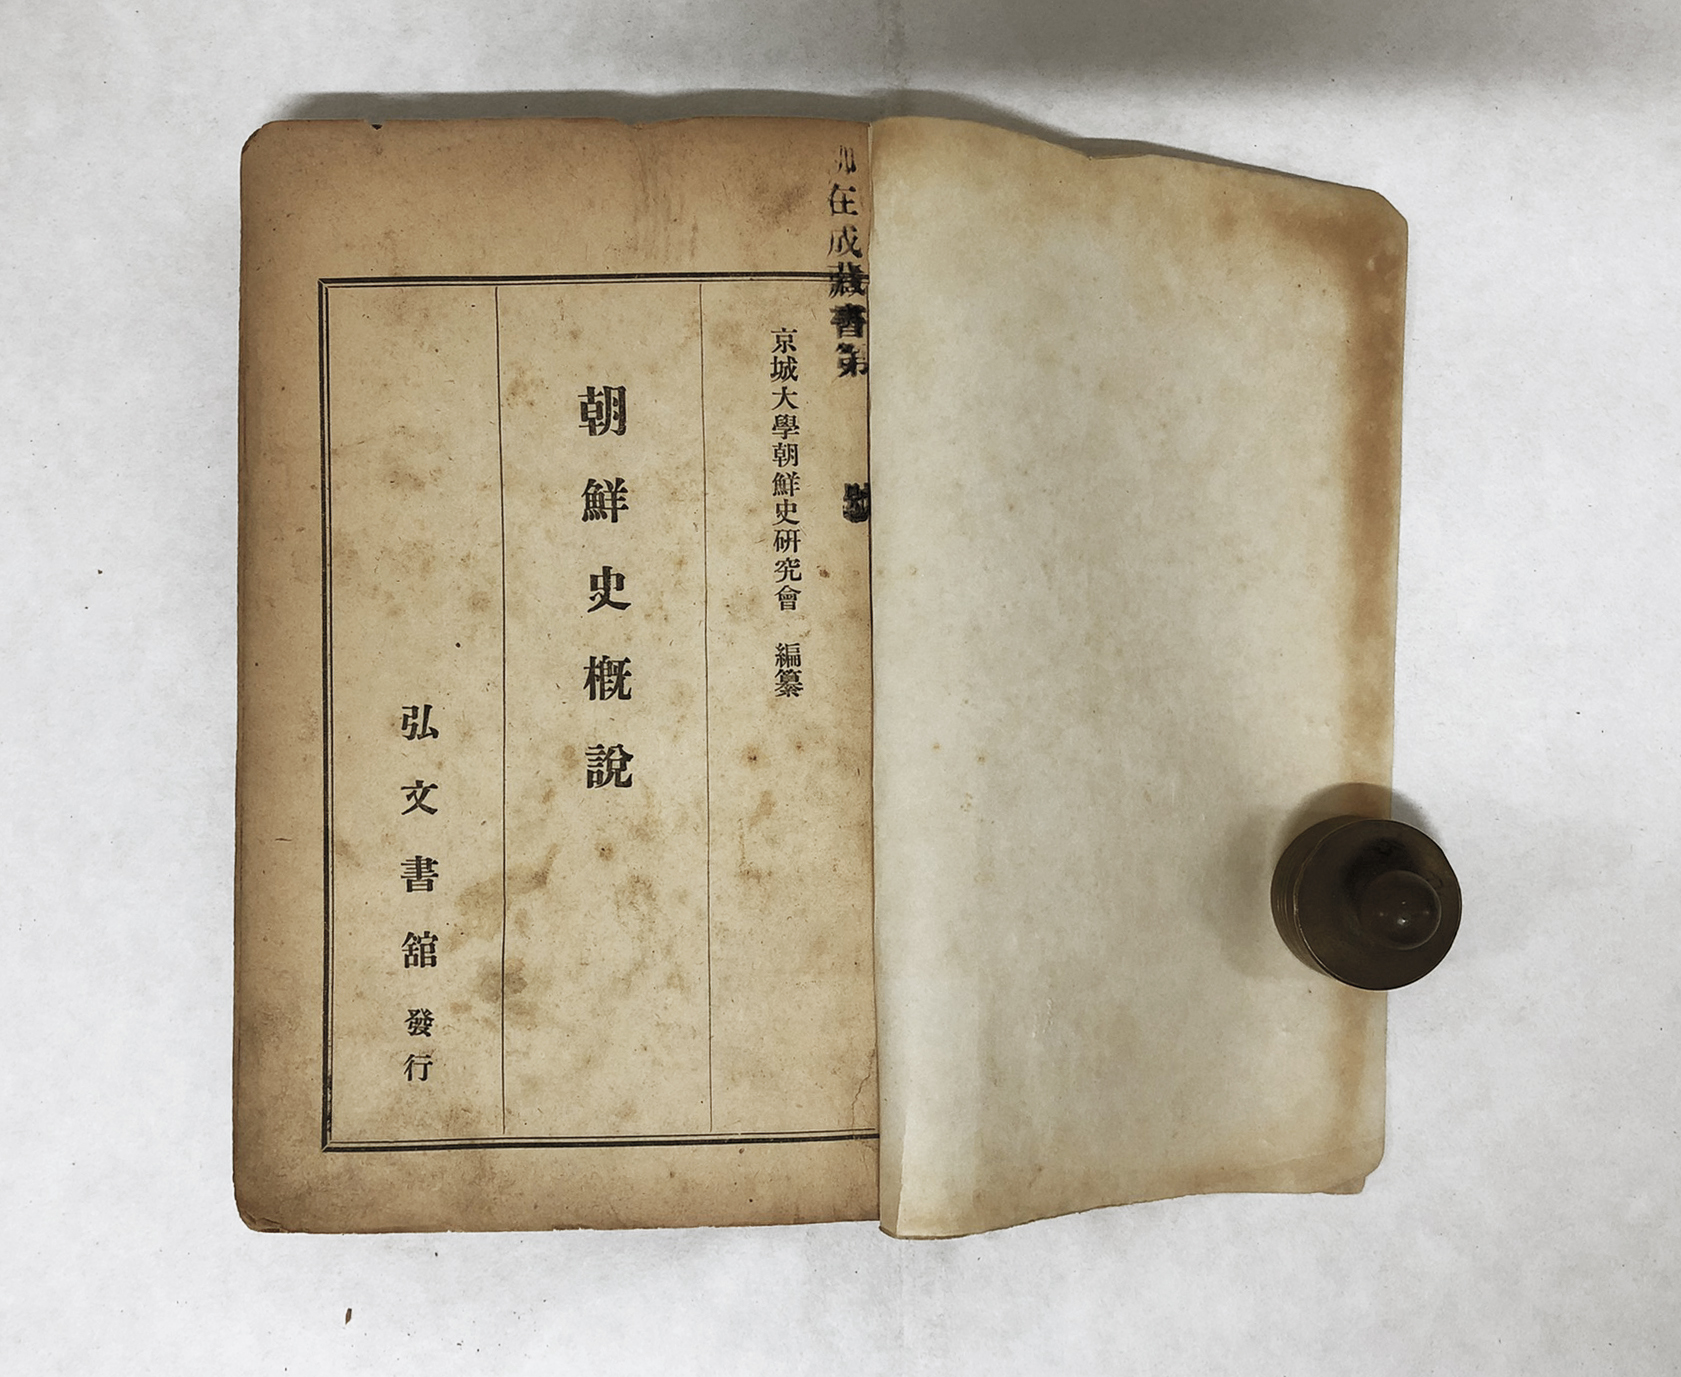 在成藏書第 號
京城大學朝鮮史硏究會 編纂
朝鮮史槪說
弘文書舘 發行